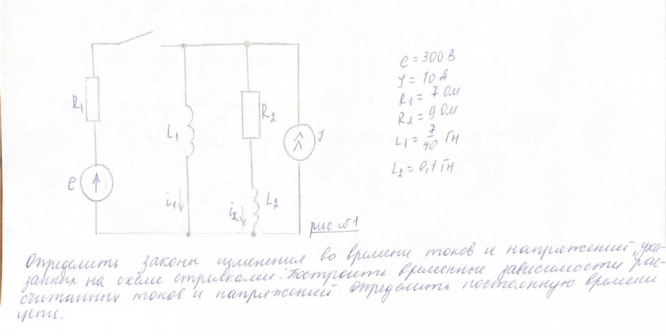 R₁
e
L₁
i₁
R₂
i₂
L₂
J
e = 300 В
J = 10 А
R₁ = 7 Ом
R₂ = 9 Ом
L₁ = 7/40 Гн
L₂ = 0,1 Гн
рис №1
Определить законы изменения во времени токов и напряжений, ука-
занных на схеме стрелками. Построить временные зависимости рас-
считанных токов и напряжений определить постоянную времени
цепи.